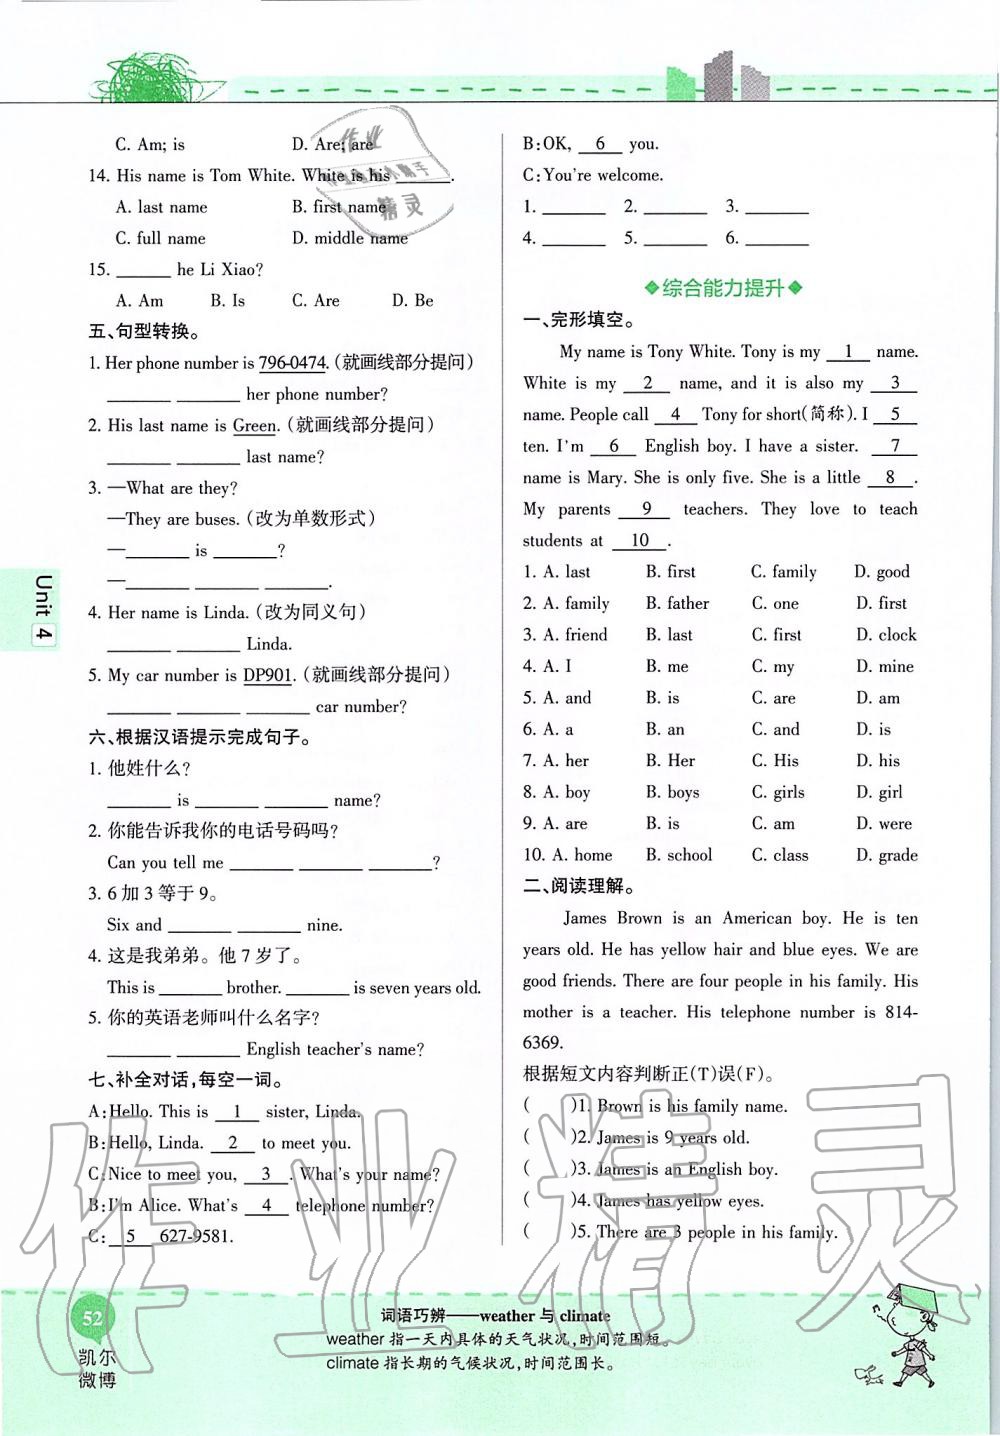 C. Am; is D. Are; are
14. His name is Tom White. White is his ______.
A. last name B. first name
C. full name D. middle name
15. ______ he Li Xiao?
A. Am B. Is C. Are D. Be
五、句型转换。
1. Her phone number is 796-0474. (就画线部分提问)
______ ______ her phone number?
2. His last name is Green. (就画线部分提问)
______ ______ last name?
3. —What are they?
—They are buses. (改为单数形式)
—______ is ______?
—______ ______ ______.
4. Her name is Linda. (改为同义句)
______ ______ Linda.
5. My car number is DP901. (就画线部分提问)
______ ______ ______ car number?
六、根据汉语提示完成句子。
1. 他姓什么?
______ is ______ ______ name?
2. 你能告诉我你的电话号码吗?
Can you tell me ______ ______ ______?
3. 6 加 3 等于 9。
Six and ______ ______ nine.
4. 这是我弟弟。他 7 岁了。
This is ______ brother. ______ is seven years old.
5. 你的英语老师叫什么名字?
______ ______ English teacher's name?
七、补全对话,每空一词。
A:Hello. This is 1 sister, Linda.
B:Hello, Linda. 2 to meet you.
C:Nice to meet you, 3 . What's your name?
B:I'm Alice. What's 4 telephone number?
C: 5 627-9581.
B:OK, 6 you.
C:You're welcome.
1. ______ 2. ______ 3. ______
4. ______ 5. ______ 6. ______
综合能力提升
一、完形填空。
My name is Tony White. Tony is my 1 name.
White is my 2 name, and it is also my 3
name. People call 4 Tony for short(简称). I 5
ten. I'm 6 English boy. I have a sister. 7
name is Mary. She is only five. She is a little 8 .
My parents 9 teachers. They love to teach
students at 10 .
1. A. last B. first C. family D. good
2. A. family B. father C. one D. first
3. A. friend B. last C. first D. clock
4. A. I B. me C. my D. mine
5. A. and B. is C. are D. am
6. A. a B. an C. and D. is
7. A. her B. Her C. His D. his
8. A. boy B. boys C. girls D. girl
9. A. are B. is C. am D. were
10. A. home B. school C. class D. grade
二、阅读理解。
James Brown is an American boy. He is ten
years old. He has yellow hair and blue eyes. We are
good friends. There are four people in his family. His
mother is a teacher. His telephone number is 814-
6369.
根据短文内容判断正(T)误(F)。
( )1. Brown is his family name.
( )2. James is 9 years old.
( )3. James is an English boy.
( )4. James has yellow eyes.
( )5. There are 3 people in his family.
Unit 4
52
凯尔
微博
词语巧辨——weather 与 climate
weather 指一天内具体的天气状况,时间范围短。
climate 指长期的气候状况,时间范围长。
作业精灵